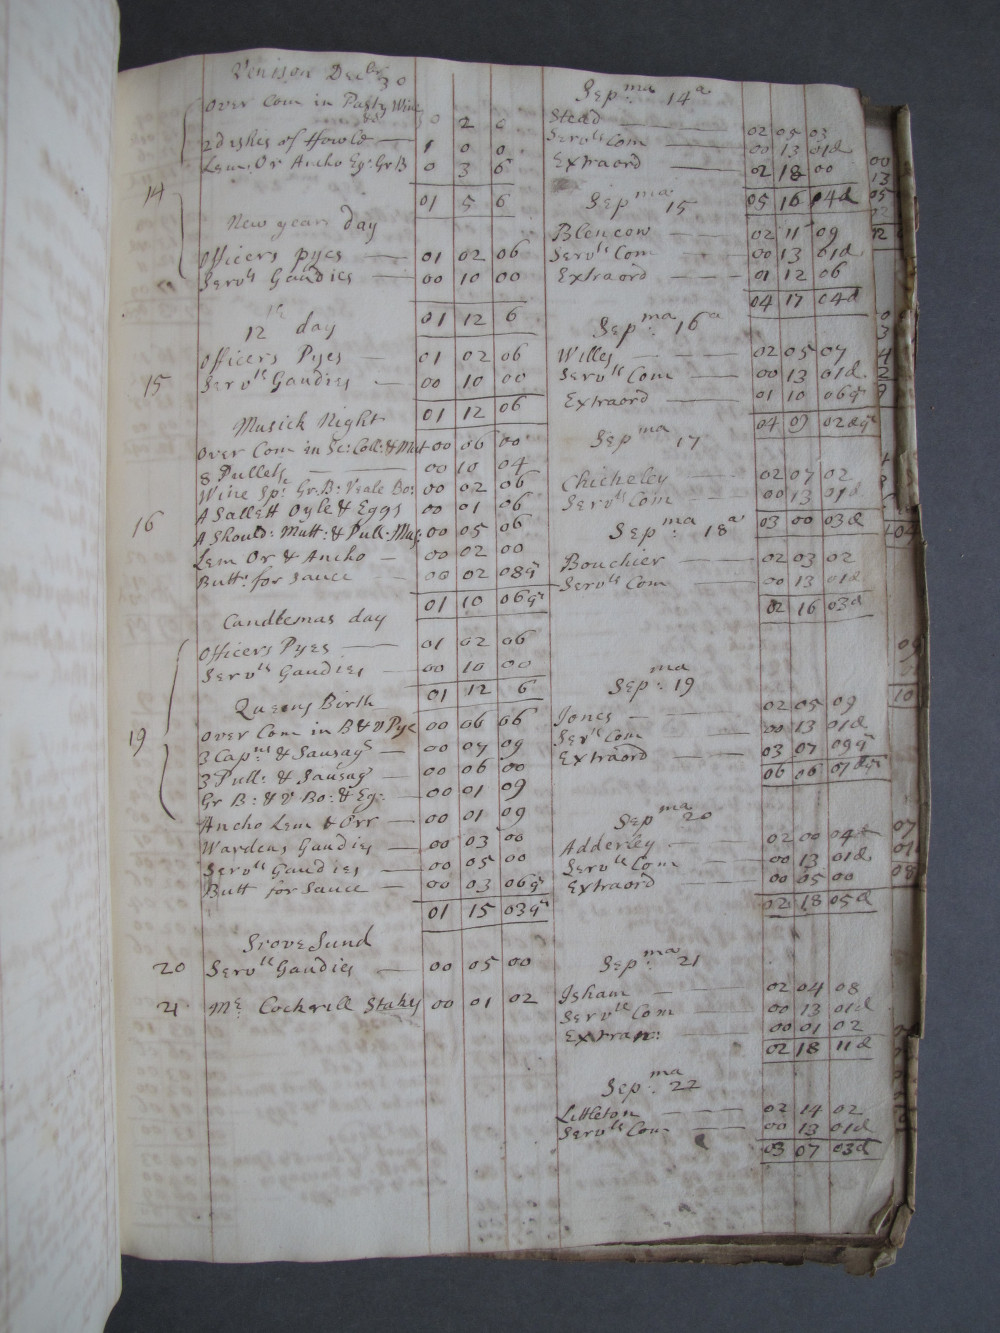 Venison Decbr 30
over Com in Pasty Wine
&c 0 2 0
2 dishes of Howld — 1 0 0
Lem: Or Ancho Eg: Gr B 0 3 6
14 01 5 6
New years day
Officers pyes — 01 02 06
Servts Gaudies — 00 10 00
01 12 6
12th day
Officers Pyes — 01 02 06
15 Servts Gaudies — 00 10 00
01 12 06
Musick Night
over Com in Sc: Coll: & Mut 00 06 00
8 Pulletts — 00 10 04
Wine Sp: Gr B: Veale Bo: 00 02 06
A Sallett Oyle & Eggs 00 01 06
16 A Should: Mutt: & Pull: Mus: 00 05 06
Lem Or & Ancho — 00 02 00
Butt: for sauce 00 02 08q
01 10 06q
Candlemas day
Officers Pyes — 01 02 06
Servts Gaudies — 00 10 00
01 12 6
Queens Birth
19 over Com in B & V Pye 00 06 06
3 Capns & Sausags — 00 07 09
3 Pull: & Sausag — 00 06 00
Gr B: & V Bo: & Eg: — 00 01 09
Ancho Lem & Orr — 00 01 09
Wardens Gaudies — 00 03 00
Servts Gaudies — 00 05 00
Butt for sauce — 00 03 06q
01 15 03q
Srove Sund
20 Servts Gaudies — 00 05 00
21 Mr Cockrill Stakes 00 01 02
Sepma 14a
Stead — 02 05 03
Servts Com — 00 13 01d
Extraord — 02 18 00
05 16 04d
Sepma 15
Blencow — 02 11 09
Servts Com — 00 13 01d
Extraord — 01 12 06
04 17 04d
Sepma 16a
Willes — 02 05 07
Servts Com — 00 13 01d
Extraord — 01 10 06q
04 09 02dq
Sepma 17
Chicheley — 02 07 02
Servts Com — 00 13 01d
03 00 03d
Sepma 18a
Bouchier — 02 03 02
Servts Com — 00 13 01d
02 16 03d
Sepma 19
Jones — 02 05 09
Servts Com — 00 13 01d
Extraord — 03 07 09q
06 06 07dq
Sepma 20
Adderley — 02 00 04
Servts Com — 00 13 01d
Extraord — 00 05 00
02 18 05d
Sepma 21
Isham — 02 04 08
Servts Com — 00 13 01d
Extran: — 00 01 02
02 18 11d
Sepma 22
Littleton — 02 14 02
Servts Com — 00 13 01d
03 07 03d